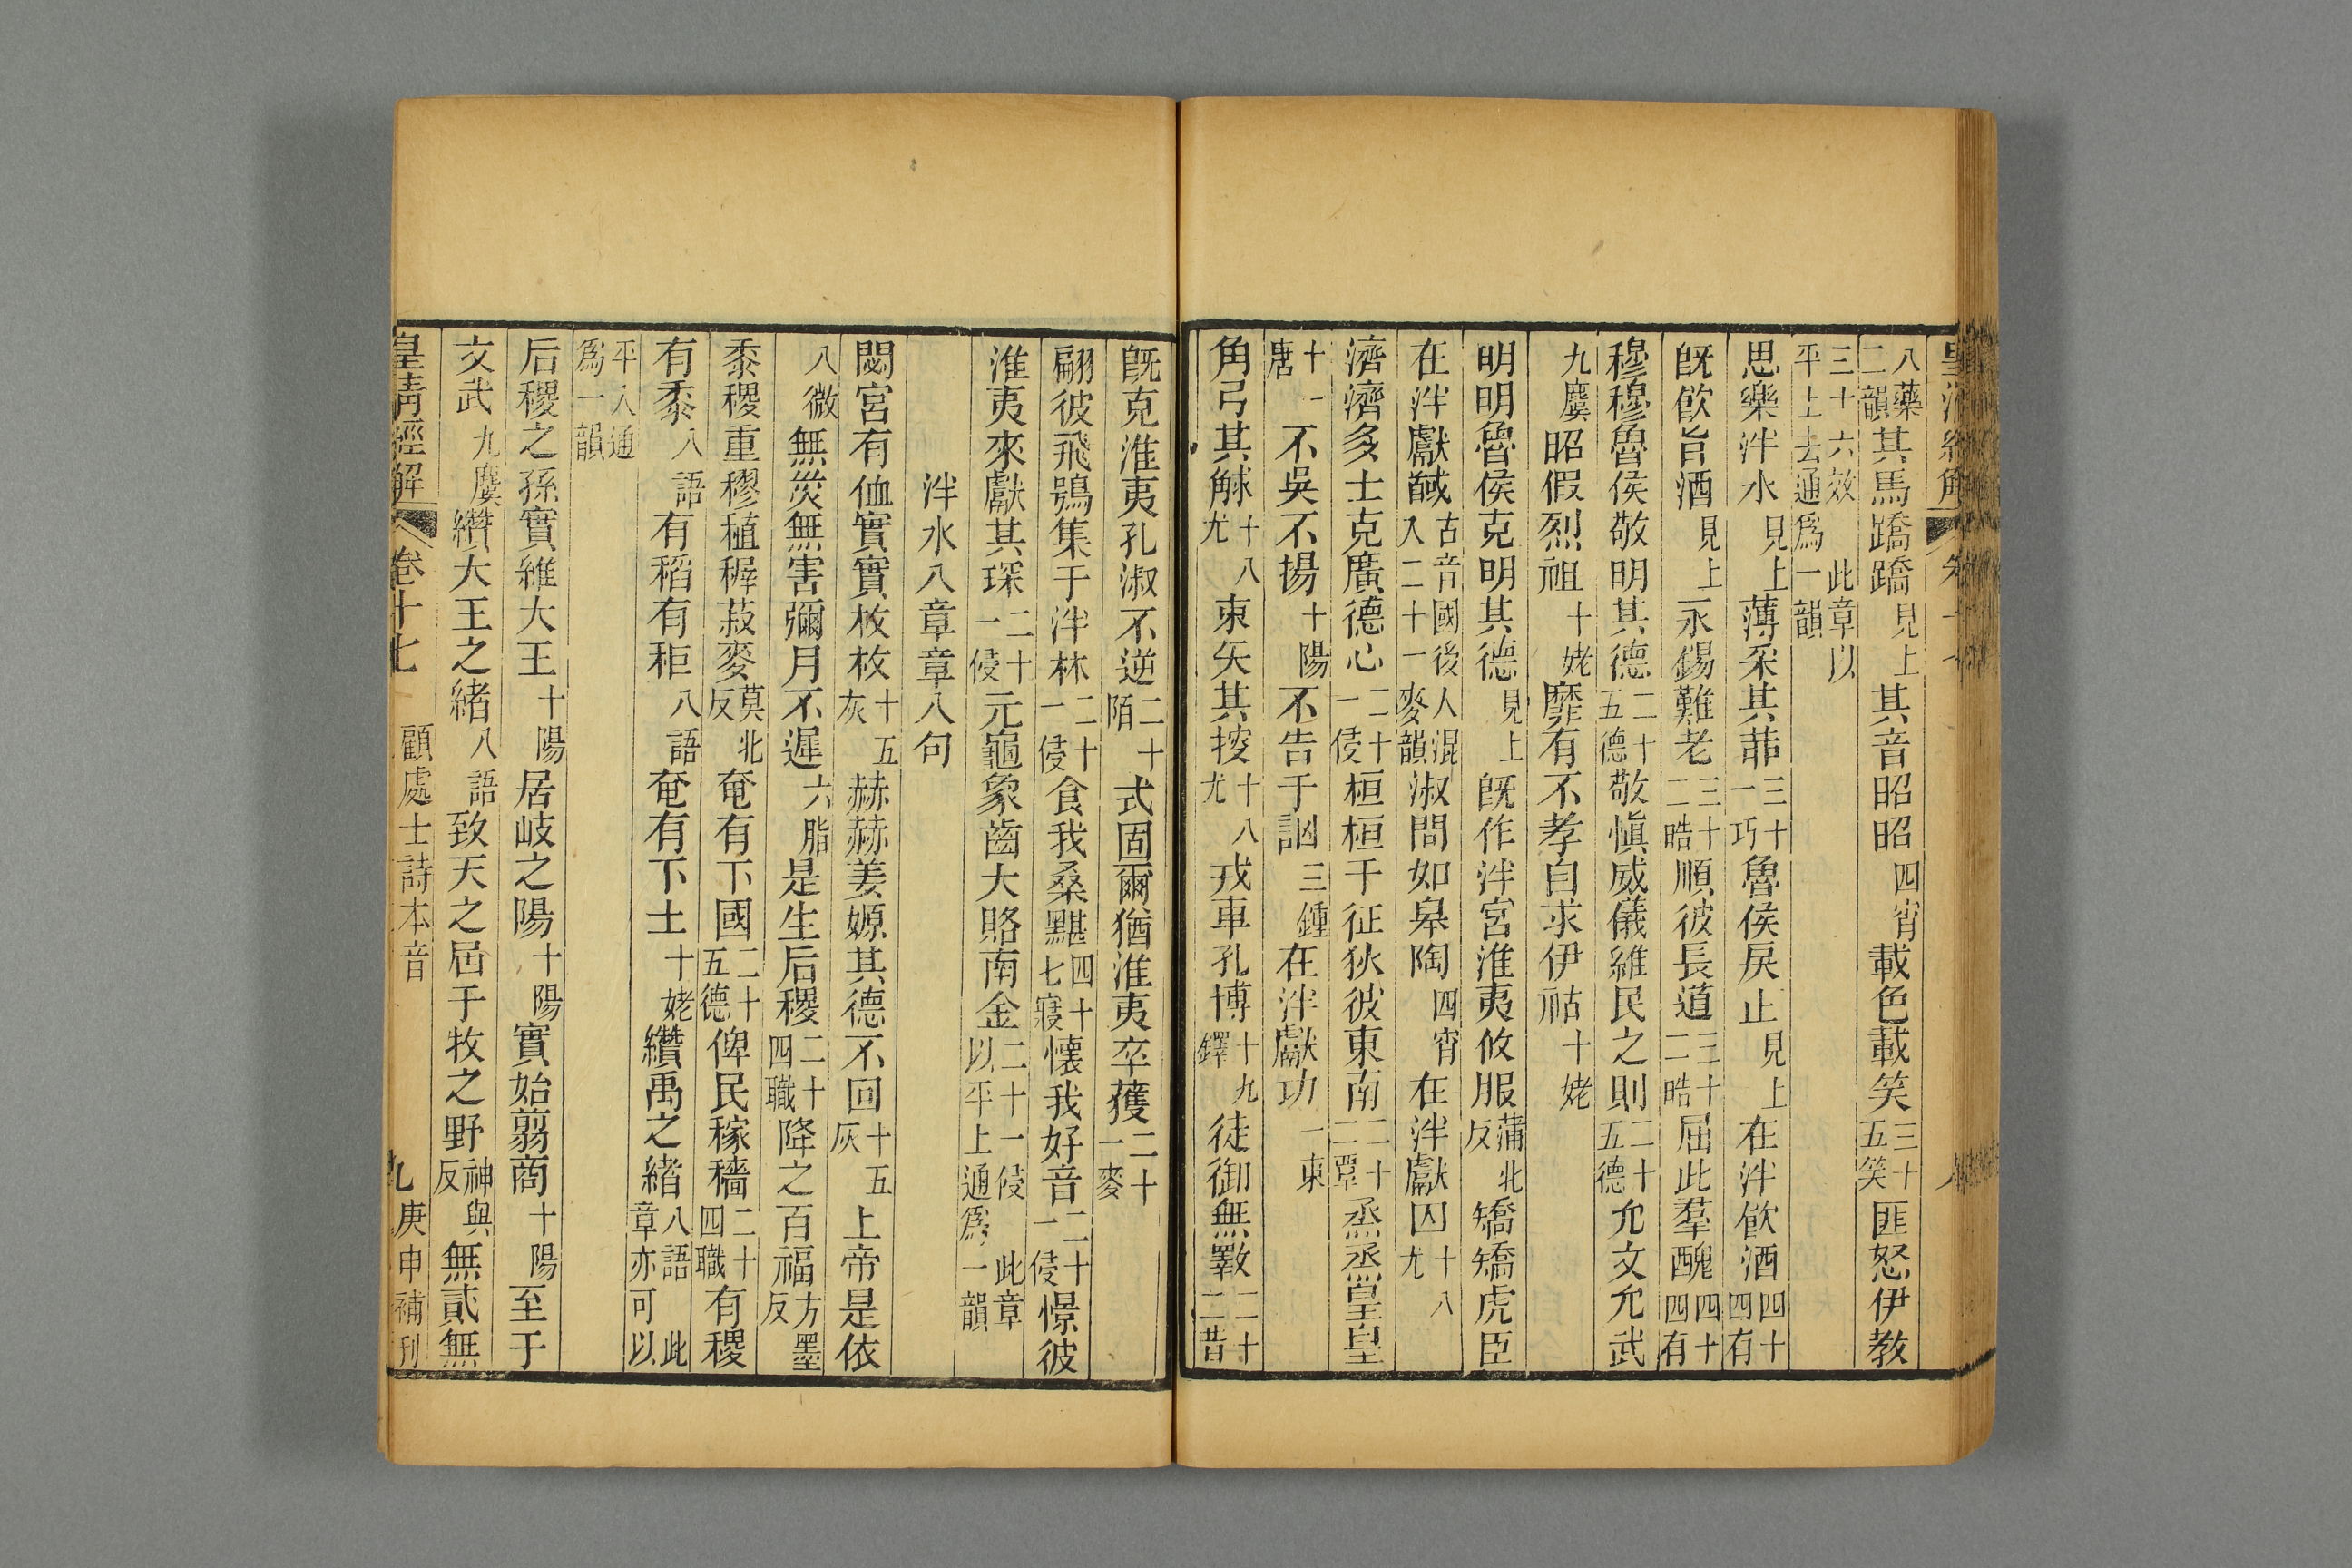 八藥二韻其馬蹻蹻見上其音昭昭四宵載色載笑三十五笑匪怒伊教
三十六效平上去通爲一韻此章以
思樂泮水見上薄采其茆三十一巧魯侯戾止見上在泮飮酒四十四有
旣飮旨酒見上永錫難老三十二晧順彼長道三十二晧屈此羣醜四十四有
穆穆魯侯敬明其德二十五德敬愼威儀維民之則二十五德允文允武
九麌昭假烈祖十姥靡有不孝自求伊祜十姥
明明魯侯克明其德見上旣作泮宮淮夷攸服蒲北反矯矯虎臣
在泮獻馘古音國後人混入二十一麥韻淑問如皋陶四宵在泮獻囚十八尤
濟濟多士克廣德心二十一侵桓桓于征狄彼東南二十二覃烝烝皇皇
十一唐不吳不揚十陽不告于訩三鍾在泮獻功一東
角弓其觩十八尤束矢其搜十八尤戎車孔博十九鐸徒御無斁二十二昔
旣克淮夷孔淑不逆二十陌式固爾猶淮夷卒獲二十一麥
翩彼飛鴞集于泮林二十一侵食我桑黮四十七寢懷我好音二十一侵憬彼
淮夷來獻其琛二十一侵元龜象齒大賂南金二十一侵此章以平上通爲一韻
泮水八章章八句
閟宮有侐實實枚枚十五灰赫赫姜嫄其德不回十五灰上帝是依
八微無災無害彌月不遲六脂是生后稷二十四職降之百福方墨反
黍稷重穋稙稺菽麥莫北反奄有下國二十五德俾民稼穡二十四職有稷
有黍八語有稻有秬八語奄有下土十姥纘禹之緒八語此章亦可以
平入通爲一韻
后稷之孫實維大王十陽居岐之陽十陽實始翦商十陽至于
文武九麌纘大王之緒八語致天之屆于牧之野神與反無貳無
皇淸經解 卷十七 顧處士詩本音 九 庚申補刊